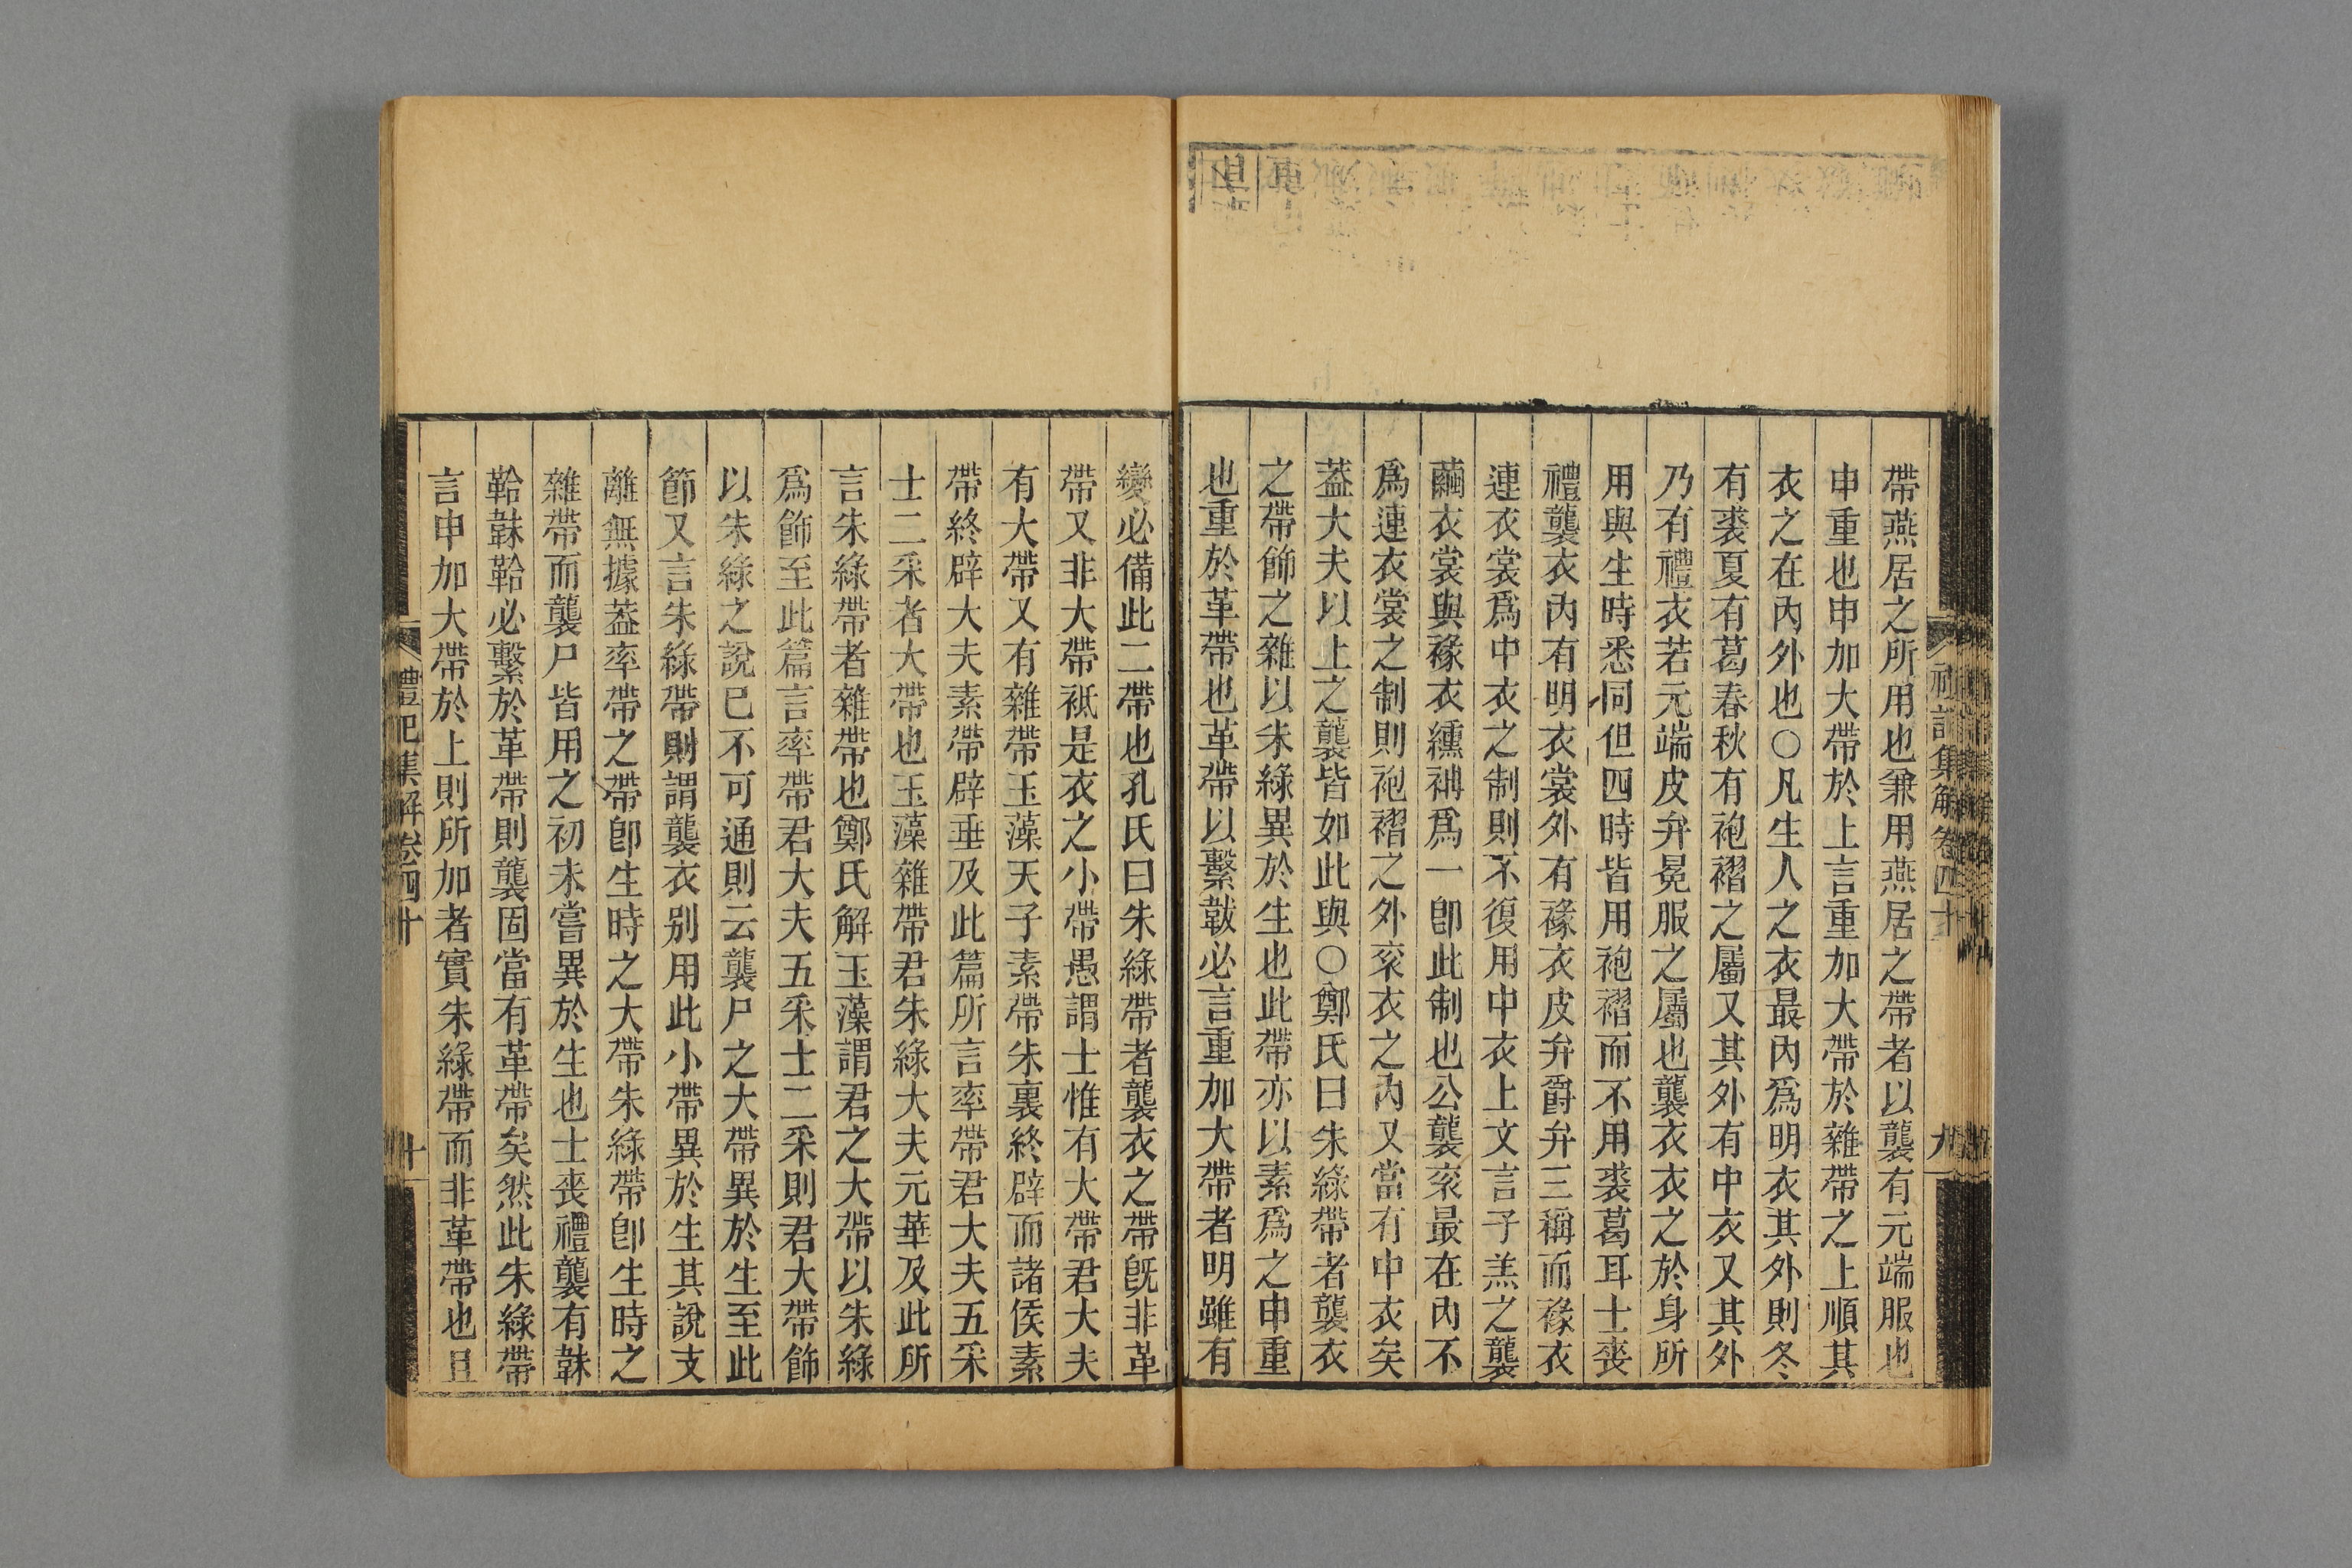 帶燕居之所用也兼用燕居之帶者以襲有元端服也
申重也申加大帶於上言重加大帶於雜帶之上順其
衣之在內外也○凡生人之衣最內爲明衣其外則冬
有裘夏有葛春秋有袍褶之屬又其外有中衣又其外
乃有禮衣若元端皮弁冕服之屬也襲衣衣之於身所
用與生時悉同但四時皆用袍褶而不用裘葛耳士喪
禮襲衣內有明衣裳外有褖衣皮弁爵弁三稱而褖衣
連衣裳爲中衣之制則不復用中衣上文言子羔之襲
繭衣裳與褖衣纁袡爲一卽此制也公襲衮最在內不
爲連衣裳之制則袍褶之外衮衣之內又當有中衣矣
葢大夫以上之襲皆如此與○鄭氏曰朱綠帶者襲衣
之帶飾之雜以朱綠異於生也此帶亦以素爲之申重
也重於革帶也革帶以繫韍必言重加大帶者明雖有
變必備此二帶也孔氏曰朱綠帶者襲衣之帶旣非革
帶又非大帶袛是衣之小帶愚謂士惟有大帶君大夫
有大帶又有雜帶玉藻天子素帶朱裏終辟而諸侯素
帶終辟大夫素帶辟垂及此篇所言率帶君大夫五采
士二采者大帶也玉藻雜帶君朱綠大夫元華及此所
言朱綠帶者雜帶也鄭氏解玉藻謂君之大帶以朱綠
爲飾至此篇言率帶君大夫五采士二采則君大帶飾
以朱綠之說已不可通則云襲尸之大帶異於生至此
節又言朱綠帶則謂襲衣别用此小帶異於生其說支
離無據葢率帶之帶卽生時之大帶朱綠帶卽生時之
雜帶而襲尸皆用之初未嘗異於生也士喪禮襲有韎
韐韎韐必繫於革帶則襲固當有革帶矣然此朱綠帶
言申加大帶於上則所加者實朱綠帶而非革帶也且
禮記集解卷四十
九
禮記集解卷四十
十